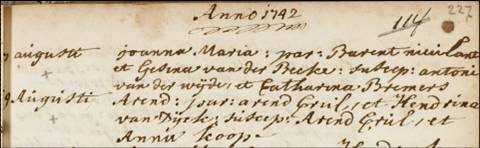 Anno 1742
114
227
7 augusti joanna Maria: par: Barent nieulant
et Gesina van der Beeke: suscep: antoni
van der wijde, et Catharina Bremers
9 Augusti Arend: par: arend Gruil, et Hendrina
van Dijck: suscep: Arend Gruil, et
Annia Scoop